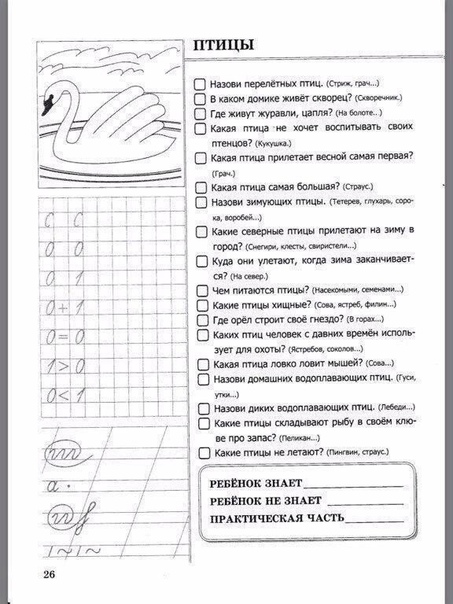 ПТИЦЫ
Назови перелётных птиц. (Стриж, грач...)
В каком домике живёт скворец? (Скворечник.)
Где живут журавли, цапля? (На болоте...)
Какая птица не хочет воспитывать своих
птенцов? (Кукушка.)
Какая птица прилетает весной самая первая?
(Грач.)
Какая птица самая большая? (Страус.)
Назови зимующих птиц. (Тетерев, глухарь, соро-
ка, воробей...)
Какие северные птицы прилетают на зиму в
город? (Снегири, клесты, свиристели...)
Куда они улетают, когда зима заканчивает-
ся? (На север.)
Чем питаются птицы? (Насекомыми, семенами...)
Какие птицы хищные? (Сова, ястреб, филин...)
Где орёл строит своё гнездо? (В горах...)
Каких птиц человек с давних времён исполь-
зует для охоты? (Ястребов, соколов...)
Какая птица ловко ловит мышей? (Сова...)
Назови домашних водоплавающих птиц. (Гуси,
утки...)
Назови диких водоплавающих птиц. (Лебеди...)
Какие птицы складывают рыбу в своём клю-
ве про запас? (Пеликан...)
Какие птицы не летают? (Пингвин, страус.)
РЕБЁНОК ЗНАЕТ
РЕБЁНОК НЕ ЗНАЕТ
ПРАКТИЧЕСКАЯ ЧАСТЬ
0 0
0 1
0+1
0=0
1>0
0<1
а
26